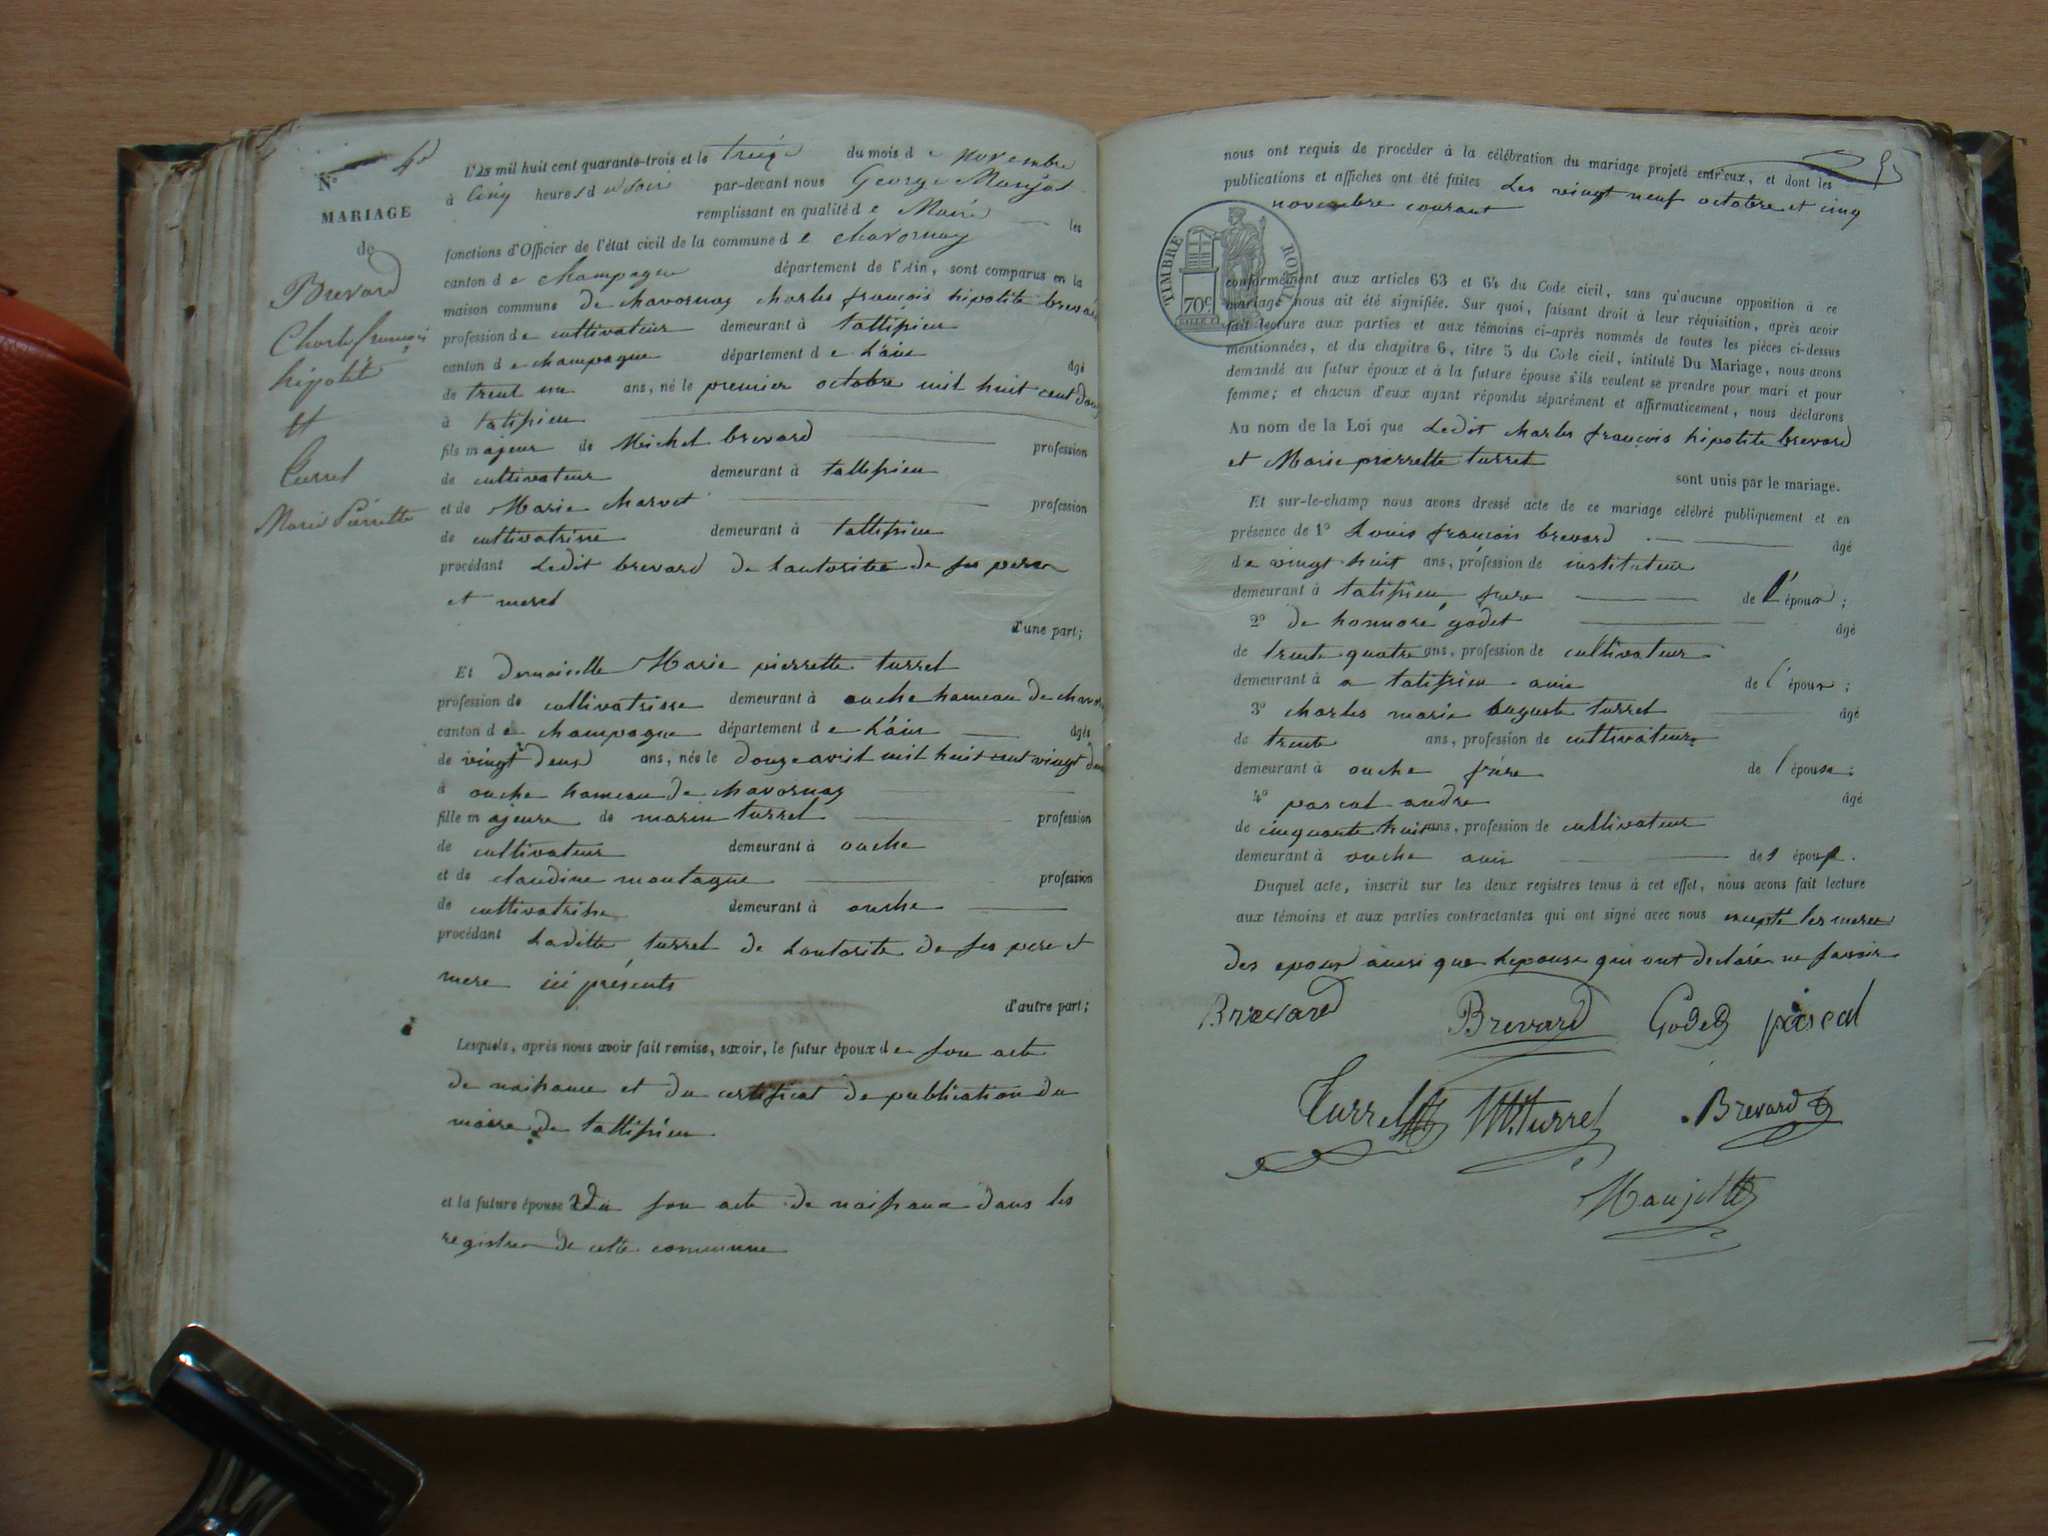 N° 4
MARIAGE
de
Brevard
Charle françois
hipolite
et
Turrel
Marie Pierrette
L'an mil huit cent quarante-trois et le treize du mois de novembre
à cinq heures du soir par-devant nous George Manjot
remplissant en qualité de Maire les
fonctions d'Officier de l'état civil de la commune de chavornay
canton de champagne département de l'Ain, sont comparus en la
maison commune de chavornay charles françois hipolite brevard
profession de cultivateur demeurant à tallissieu
canton de champagne département de l'ain âgé
de trent un ans, né le premier octobre mil huit cent douze
à talissieu
fils majeur de Michel brevard profession
de cultivateur demeurant à tallissieu
et de Marie charvet profession
de cultivatrisse demeurant à tallissieu
procédant Ledit brevard de lautoritée de ses peres
et meres
d'une part;
Et demoiselle Marie pierrette turrel
profession de cultivatrisse demeurant à ouche hameau de chavor
canton de champagne département de l'ain âgée
de vingt deux ans, née le douze avril mil huit cent vingt deux
à ouche hameau de chavornay
fille majeure de marin turrel profession
de cultivateur demeurant à ouche
et de claudine montagne profession
de cultivatrisse demeurant à ouche
procédant Laditte turrel de lautorité de ses pere et
mere ici présents
d'autre part;
Lesquels, après nous avoir fait remise, savoir, le futur époux de son acte
de naissance et du certificat de publication du
maire de tallissieu
et la future épouse de son acte de naissance dans les
registre de cette commune
nous ont requis de procéder à la célébration du mariage projeté entr'eux, et dont les
publications et affiches ont été faites Les vingt neuf octobre et cinq
novembre courant
TIMBRE ROYAL
70c
conformément aux articles 63 et 64 du Code civil, sans qu'aucune opposition à ce
mariage nous ait été signifiée. Sur quoi, faisant droit à leur réquisition, après avoir
fait lecture aux parties et aux témoins ci-après nommés de toutes les pièces ci-dessus
mentionnées, et du chapitre 6, titre 5 du Code civil, intitulé Du Mariage, nous avons
demandé au futur époux et à la future épouse s'ils veulent se prendre pour mari et pour
femme; et chacun d'eux ayant répondu séparément et affirmativement, nous déclarons
Au nom de la Loi que Ledit charles françois hipolite brevard
et Marie pierrette turrel
sont unis par le mariage.
Et sur-le-champ nous avons dressé acte de ce mariage célébré publiquement et en
présence de 1° Louis françois brevard âgé
de vingt huit ans, profession de instituteur
demeurant à talissieu frere de l'époux;
2° de honnoré godet âgé
de trente quatre ans, profession de cultivateur
demeurant à a talissieu ami de l'époux;
3° charles marie auguste turrel âgé
de trente ans, profession de cultivateur
demeurant à ouche frére de l'épouse;
4° pascal andre âgé
de cinquante huit ans, profession de cultivateur
demeurant à ouche ami de l'épouse.
Duquel acte, inscrit sur les deux registres tenus à cet effet, nous avons fait lecture
aux témoins et aux parties contractantes qui ont signé avec nous excepté les meres
des epoux ainsi que lepouse qui ont déclaré ne savoir
Brevard Brevard Godet pascal
Turrel M. Turrel Brevard
Manjot